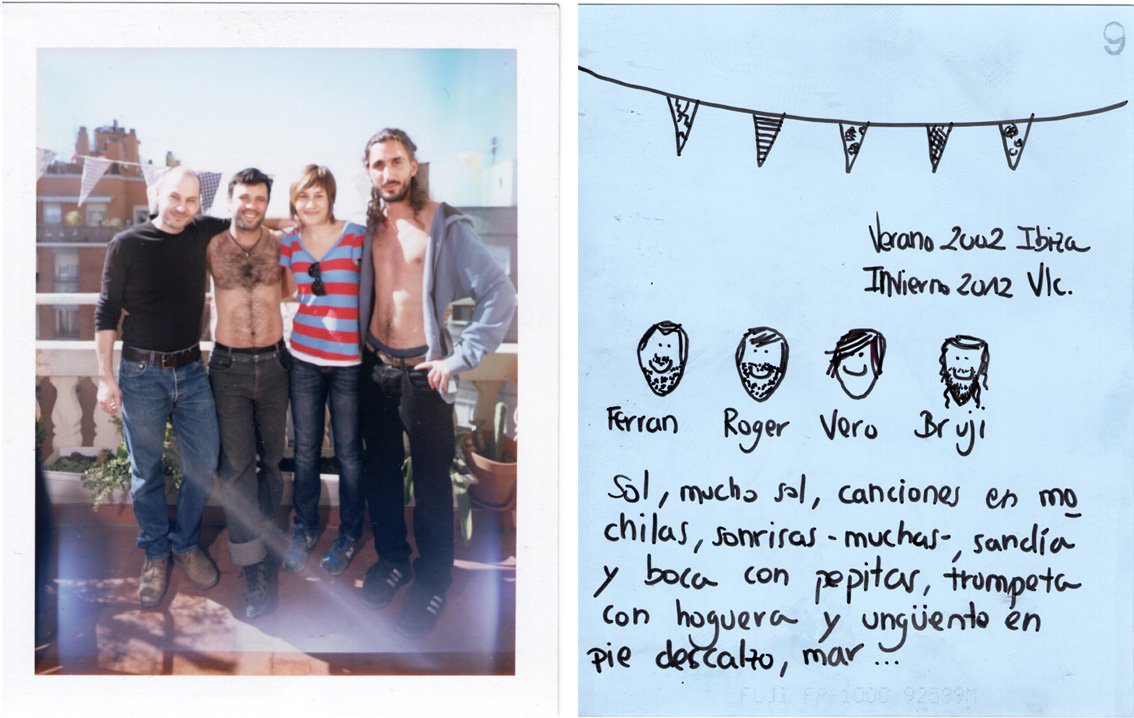 9
Verano 2002 Ibiza
INVierno 2012 Vlc.
Ferran Roger Vero Bruji
Sol, mucho sol, canciones en mo
chilas, sonrisas - muchas-, sandía
y boca con pepitas, trompeta
con hoguera y ungüento en
pie descalzo, mar ...